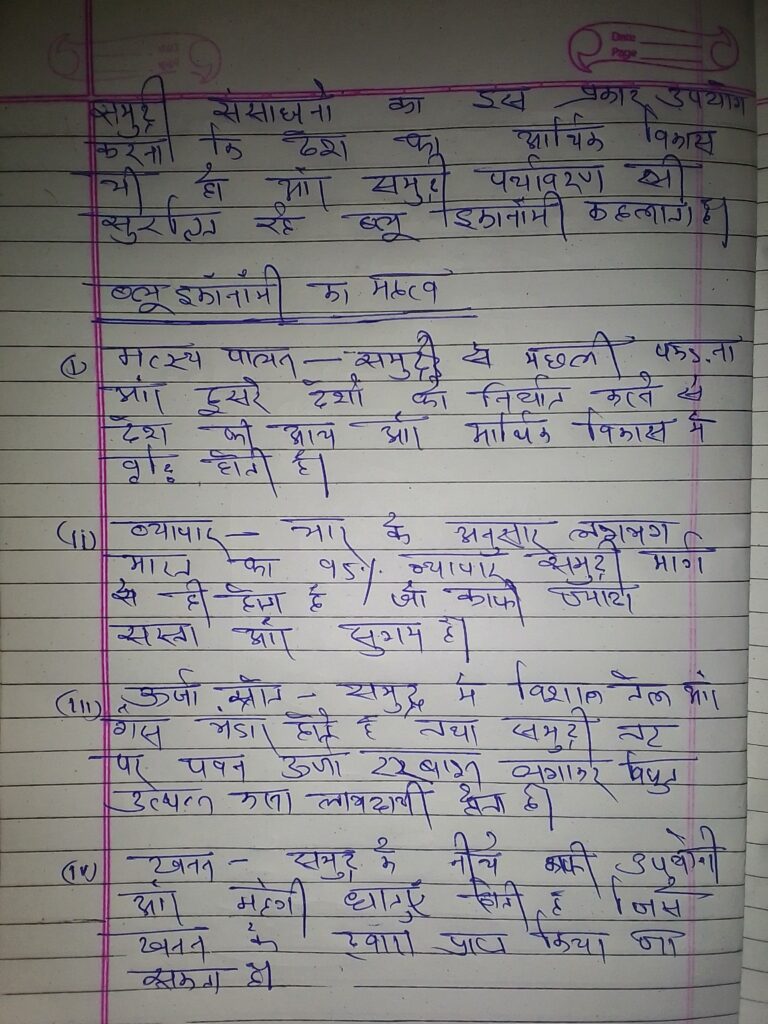 Date
Page
समुद्री संसाधनो का इस प्रकार उपयोग
करना कि देश का आर्थिक विकास
भी हो और समुद्री पर्यावरण भी
सुरक्षित रहे ब्लू इकॉनॉमी कहलाता है।
ब्लू इकॉनॉमी का महत्व
(i) मत्स्य पालन — समुद्रो से मछली पकड़ना
और दूसरे देशों को निर्यात करने से
देश की आय और आर्थिक विकास मे
वृद्धि होती है।
(ii) व्यापार — भार के अनुसार लगभग
भारत का 95% व्यापार समुद्री मार्ग
से ही होता है जो काफी ज्यादा
सस्ता और सुगम है।
(iii) ऊर्जा स्रोत - समुद्र मे विशाल तेल और
गैस भंडार होते है तथा समुद्री तट
पर पवन ऊर्जा टरबाइन लगाकर विधुत
उत्पन्न करना लाभदायी होता है।
(iv) खनन - समुद्र के नीचे काफी उपयोगी
और महंगी धातुएँ होती है जिसे
खनन के द्वारा प्राप्त किया जा
सकता है।